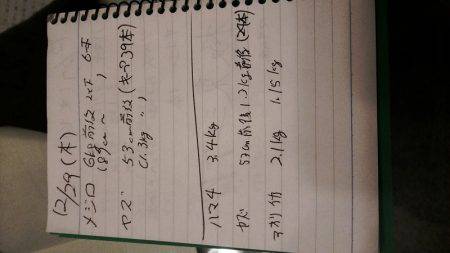 12/29 (木)
メジロ 6kg前後 2本 6本
(89cm〜 〃
ヤズ 53cm前後 (キープ39本)
(1.3kg 〃 )
ハマチ 3.4kg
ヤズ 53cm前後 1.2kg前後 (29本)
マガリ 2.1kg 1.15kg